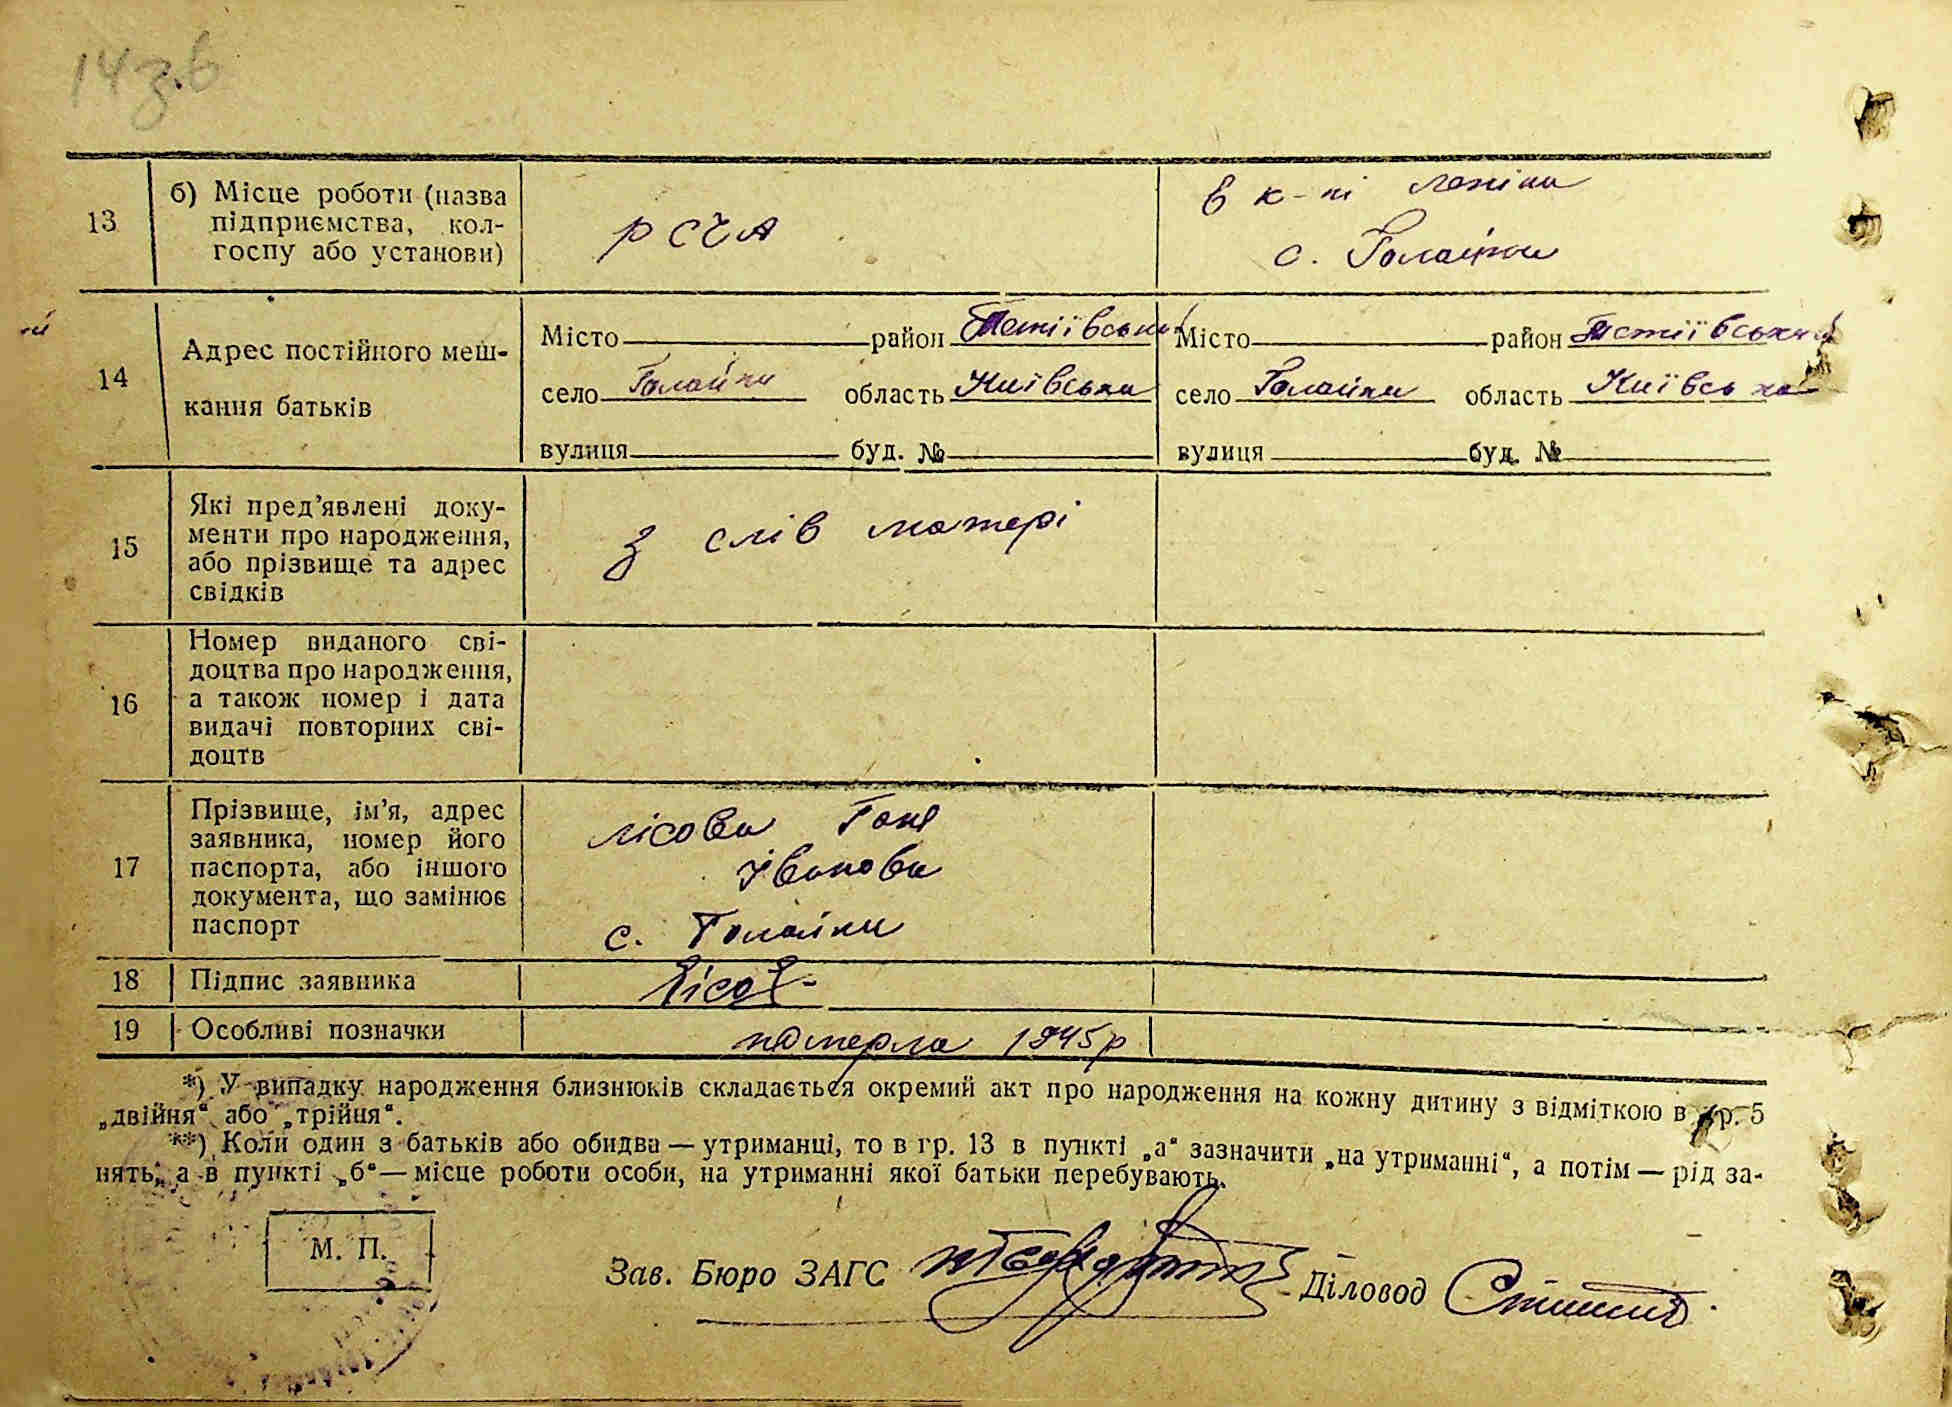 14 з.б
13
б) Місце роботи (назва
підприємства, кол-
госпу або установи)
РСЧА
в к-пі Леніна
с. Голайки
14
Адрес постійного меш-
кання батьків
Місто район Тетіївський
село Голайки область Київська
вулиця буд. №
Місто район Тетіївський
село Голайки область Київська
вулиця буд. №
15
Які пред’явлені доку-
менти про народження,
або прізвище та адрес
свідків
з слів матері
16
Номер виданого сві-
доцтва про народження,
а також номер і дата
видачі повторних сві-
доцтв
17
Прізвище, ім’я, адрес
заявника, номер його
паспорта, або іншого
документа, що замінює
паспорт
Лісова Ганя
Іванова
с. Голайки
18
Підпис заявника
Лісов
19
Особливі позначки
померла 1945р
*) У випадку народження близнюків складається окремий акт про народження на кожну дитину з відміткою в гр. 5
„двійня“ або „трійня“.
**) Коли один з батьків або обидва — утриманці, то в гр. 13 в пункті „а“ зазначити „на утриманні“, а потім — рід за-
нять, а в пункті „б“ — місце роботи особи, на утриманні якої батьки перебувають.
М. П.
Зав. Бюро ЗАГС
Діловод